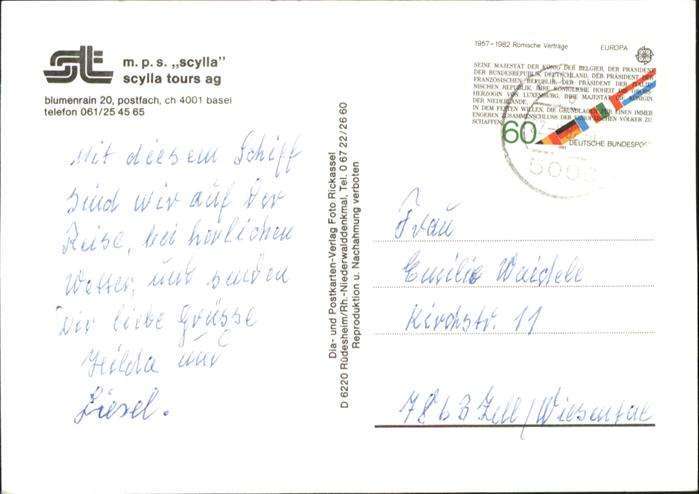 m. p. s. „scylla"
scylla tours ag
blumenrain 20, postfach, ch 4001 basel
telefon 061/25 45 65
Mit diesem Schiff
sind wir auf der
Reise, bei herlichen
Wetter, und senden
Dir liebe Grüsse
Hilda und
Liesel.
Dia- und Postkarten-Verlag Foto Rickassel
D 6220 Rüdesheim/Rh.-Niederwalddenkmal, Tel. 0 67 22/26 60
Reproduktion u. Nachahmung verboten
1957–1982 Römische Verträge EUROPA
SEINE MAJESTÄT DER KÖNIG DER BELGIER, DER PRÄSIDENT
DER BUNDESREPUBLIK DEUTSCHLAND, DER PRÄSIDENT DER
FRANZÖSISCHEN REPUBLIK, DER PRÄSIDENT DER ITALIE
NISCHEN REPUBLIK, IHRE KÖNIGLICHE HOHEIT DIE GROSS
HERZOGIN VON LUXEMBURG, IHRE MAJESTÄT DIE KÖNIGIN
DER NIEDERLANDE,
IN DEM FESTEN WILLEN, DIE GRUNDLAGEN FÜR EINEN IMMER
ENGEREN ZUSAMMENSCHLUSS DER EUROPÄISCHEN VÖLKER ZU
SCHAFFEN
60
DEUTSCHE BUNDESPOST
Frau
Emilie Waichele
Kirchstr. 11
7863 Zell/Wiesental